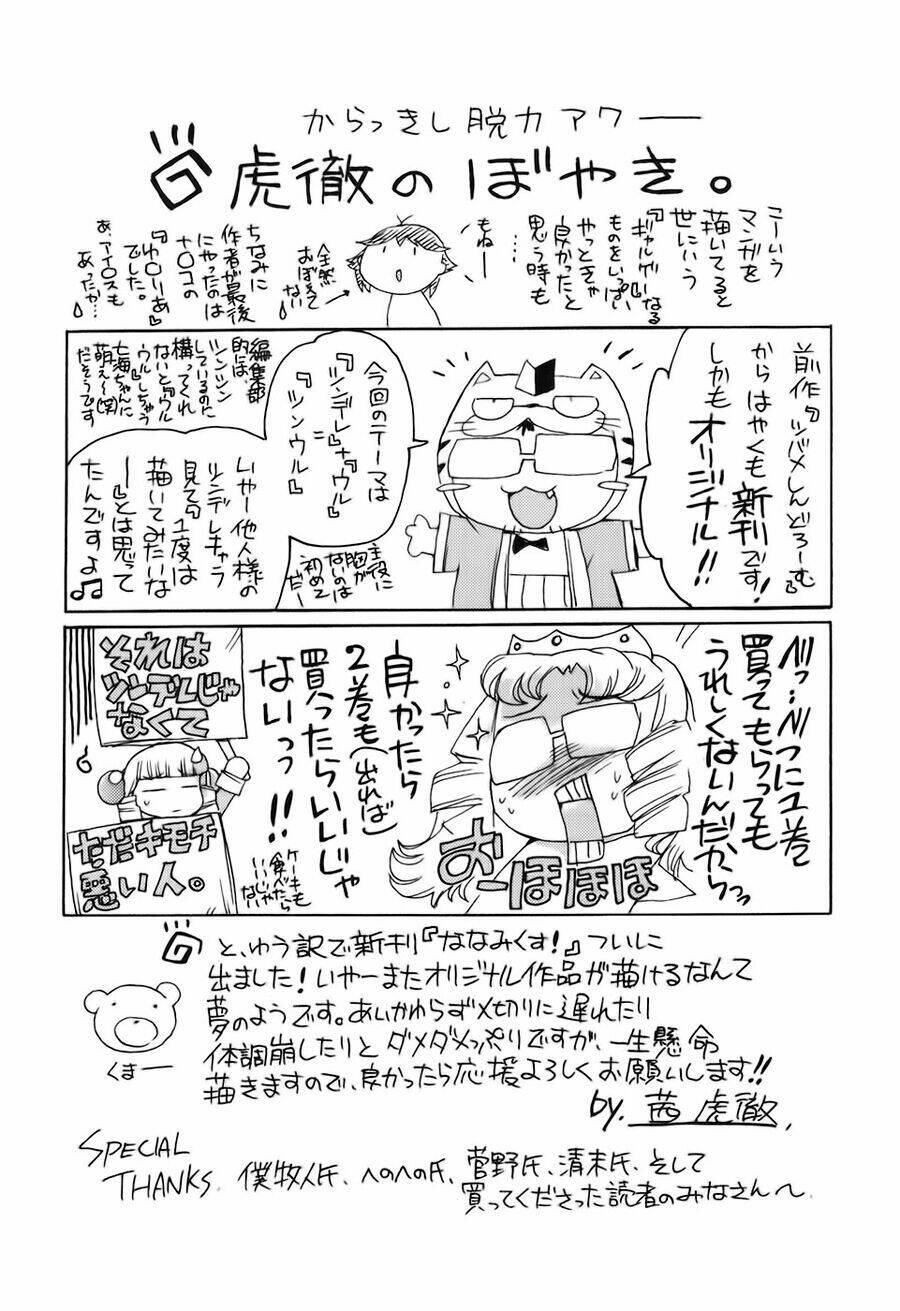 からっきし脱力アワー
虎徹のぼやき。
こーいう
マンガを
描いてると
世にいう
『ギャルゲー』なる
ものをいっぱい
やっときゃ
良かったと
思う時も
……
もねー
全然
おぼえて
ない
ちなみに
作者が最後
にやったのは
ナ○コの
『ゆ○りあ』
でした。
あ、ア○ロスも
あったか…
前作『ツバメしんどろーむ』
からはやくも新刊です!
しかもオリジナル!!
今回のテーマは
『ツンデレ』+『ウル』
=
『ツンウル』
主役に
胸が
ないのは
初めて
だー
編集部
的には、
ツンツン
しているのに
構ってくれ
ないと『ウル
ウル』しちゃう
七海ちゃんに
萌え〜(笑)
だそうです
いやー他人様の
ツンデレキャラ
見て『1度は
描いてみたいな
ー』とは思って
たんですよ♫
べっ…べつに1巻
買ってもらっても
うれしくないんだからっ
良かったら
2巻も(出れば)
買ったらいいじゃ
ないっっ!!
ケーキも
食べたら
いいじゃ
ない
おーほほほほ
それは
ツンデレじゃ
なくて
ただキモチ
悪い人。
と、ゆう訳で新刊『ななみくす!』ついに
出ました!いやーまたオリジナル作品が描けるなんて
夢のようです。あいかわらず〆切りに遅れたり
体調崩したりとダメダメっぷりですが、一生懸命
描きますので、良かったら応援よろしくお願いします!!
くまー
by. 茜虎徹.
SPECIAL
THANKS. 僕牧人氏、へのへの氏、菅野氏、清末氏、そして
買ってくださった読者のみなさん〜